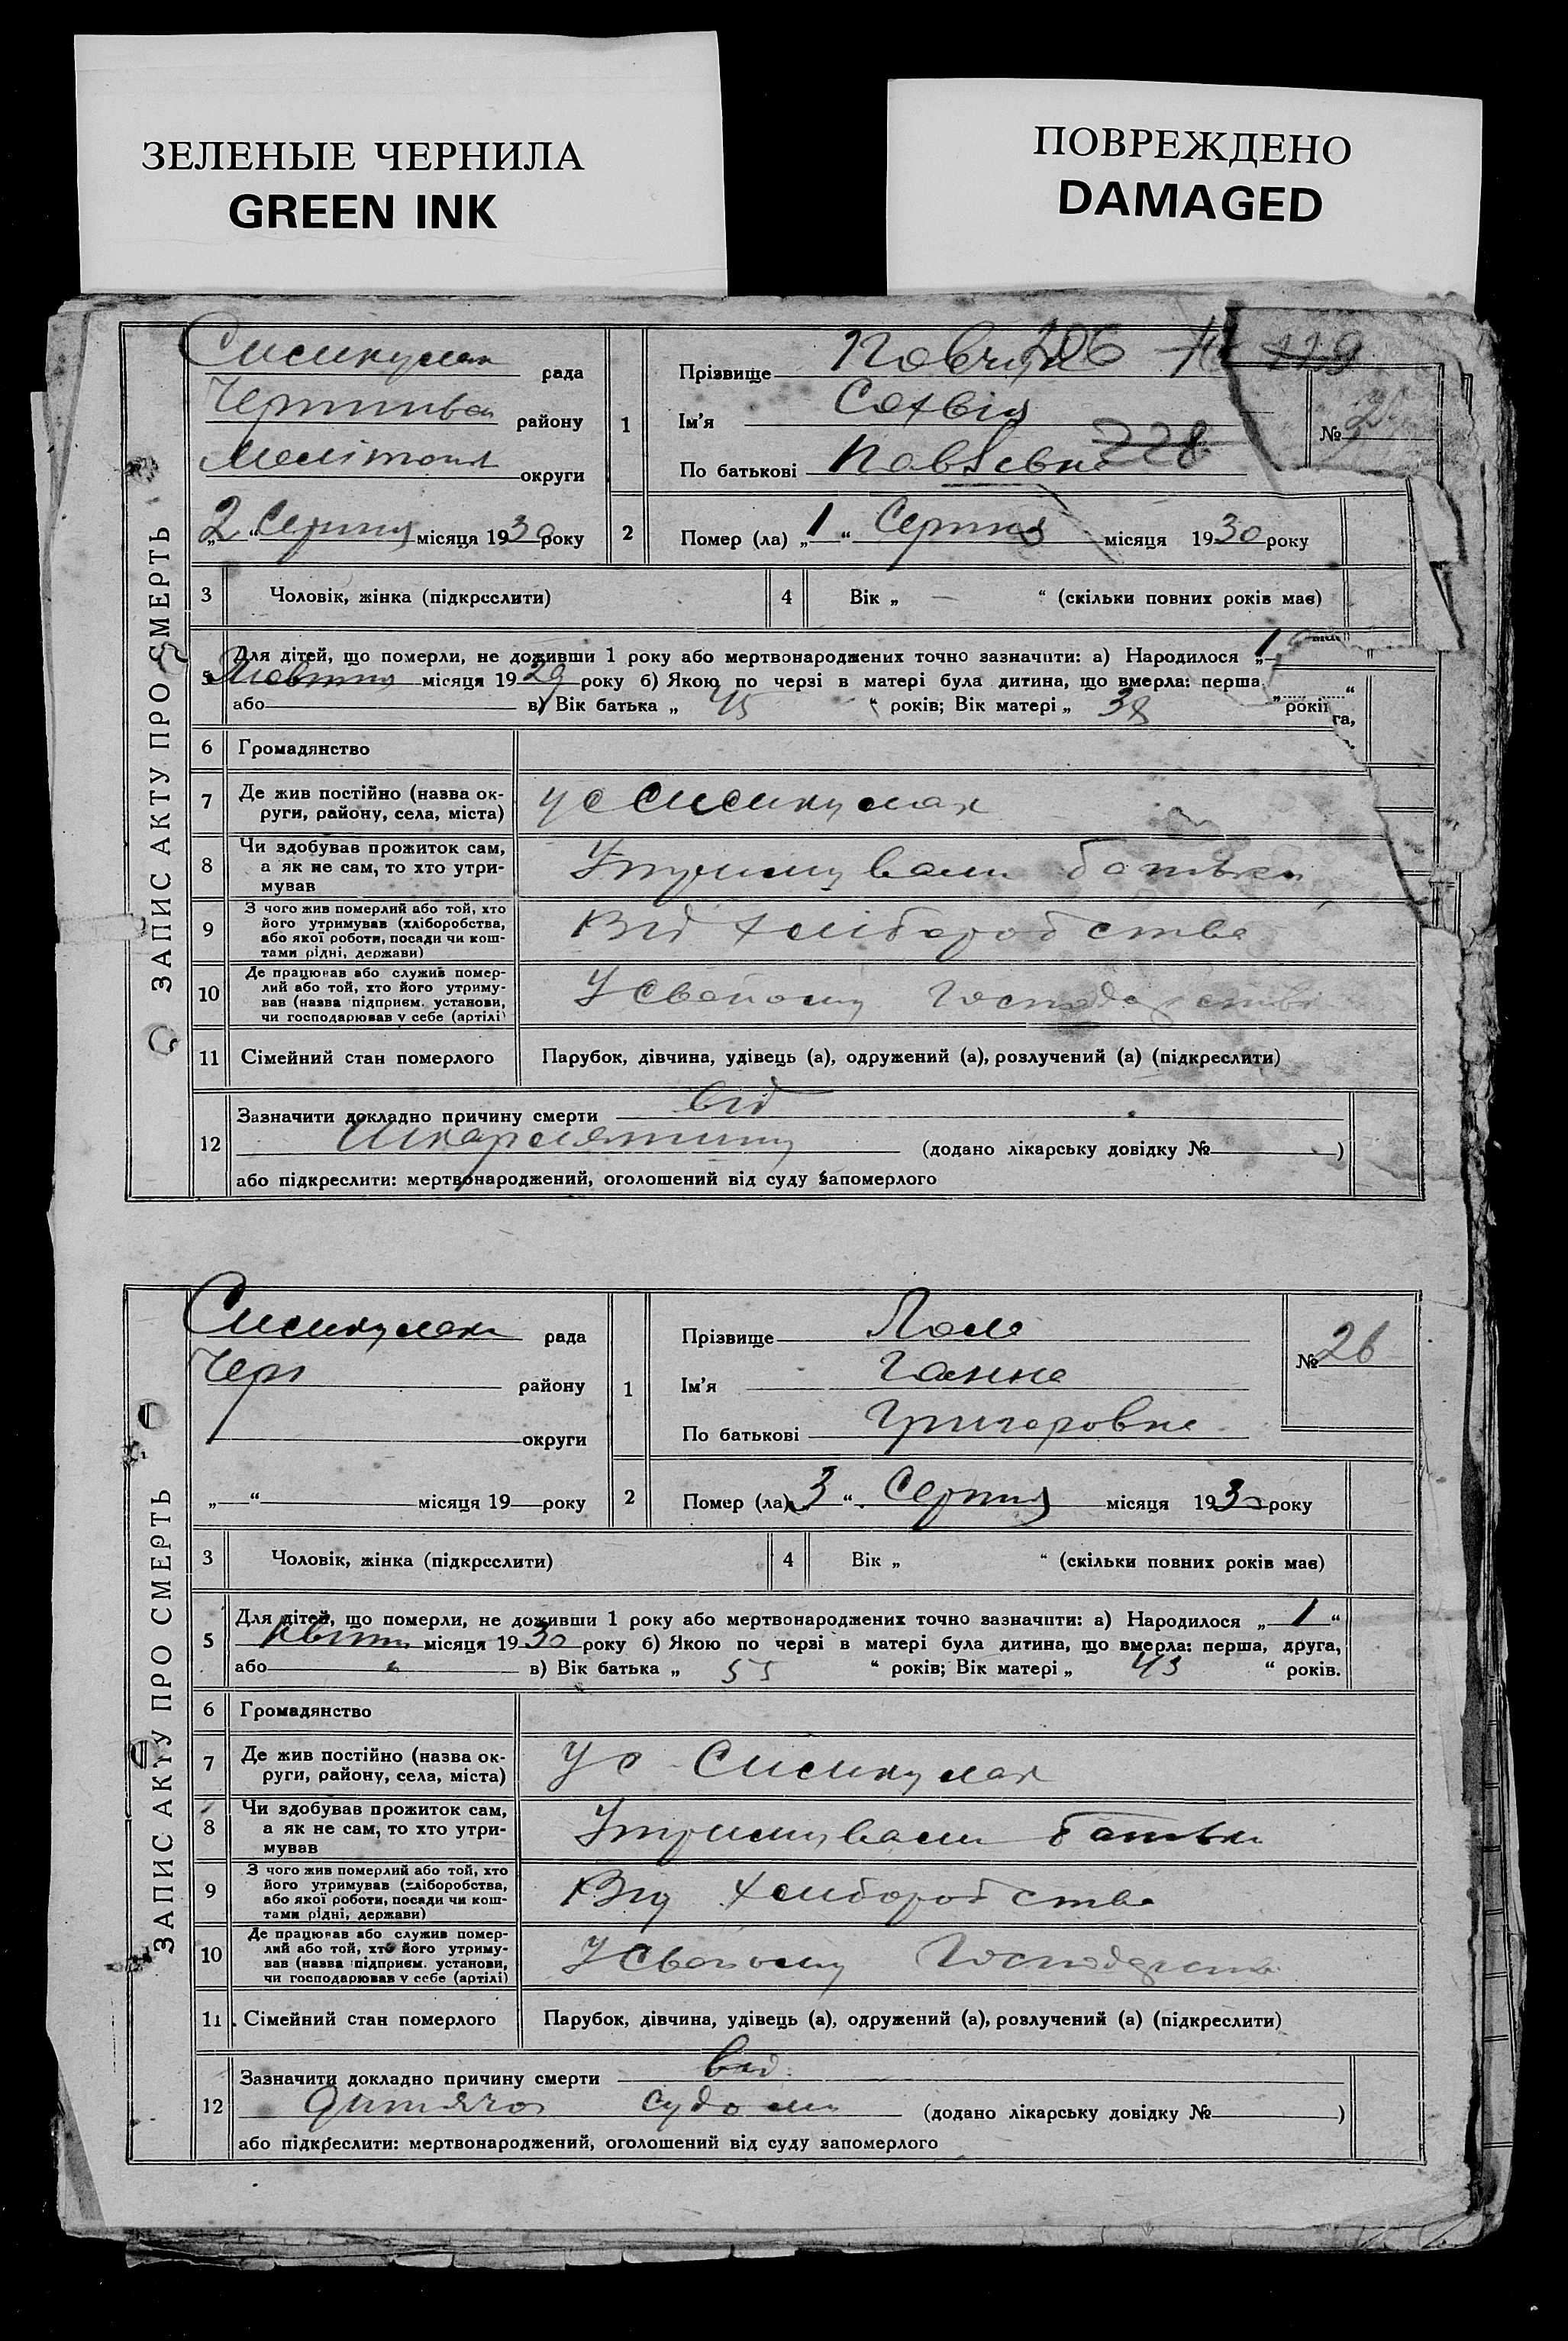 ЗЕЛЕНЫЕ ЧЕРНИЛА
GREEN INK
ПОВРЕЖДЕНО
DAMAGED
ЗАПИС АКТУ ПРО СМЕРТЬ
рада
району
округи
„2“ Серпня місяця 1930 року
1
Прізвище 206 119
Ім'я Софія
По батькові 228
№
2 Помер (ла) „1“ Серпня місяця 1930 року
3 Чоловік, жінка (підкреслити)
4 Вік „ — “ (скільки повних років має)
5 Для дітей, що померли, не доживши 1 року або мертвонароджених точно зазначити: а) Народилося „1
Жовтня місяця 1929 року б) Якою по черзі в матері була дитина, що вмерла: перша
або в) Вік батька „ 45 “ років; Вік матері „ 38 “ років
га,
6 Громадянство
7 Де жив постійно (назва ок-
руги, району, села, міста)
у с
8 Чи здобував прожиток сам,
а як не сам, то хто утри-
мував
Утримували батьки
9 З чого жив померлий або той, хто
його утримував (хліборобства,
або якої роботи, посади чи кош-
тами рідні, держави)
Від хліборобства
10 Де працював або служив помер-
лий або той, хто його утриму-
вав (назва підприєм. установи,
чи господарював у себе (артілі)
У свойому господарстві
11 Сімейний стан померлого
Парубок, дівчина, удівець (а), одружений (а), розлучений (а) (підкреслити)
12 Зазначити докладно причину смерти від
Шкарлятини (додано лікарську довідку № )
або підкреслити: мертвонароджений, оголошений від суду запомерлого
ЗАПИС АКТУ ПРО СМЕРТЬ
рада
Черн району
округи
„ “ місяця 19 року
1
Прізвище
Ім'я Ганна
По батькові Григоровна
№ 26
2 Помер (ла) „3“ Серпня місяця 1930 року
3 Чоловік, жінка (підкреслити)
4 Вік „ “ (скільки повних років має)
5 Для дітей, що померли, не доживши 1 року або мертвонароджених точно зазначити: а) Народилося „1“
Квітня місяця 1930 року б) Якою по черзі в матері була дитина, що вмерла: перша, друга,
або 6 в) Вік батька „ 55 “ років; Вік матері „ 43 “ років.
6 Громадянство
7 Де жив постійно (назва ок-
руги, району, села, міста)
У с
8 Чи здобував прожиток сам,
а як не сам, то хто утри-
мував
Утримували батьки
9 З чого жив померлий або той, хто
його утримував (хліборобства,
або якої роботи, посади чи кош-
тами рідні, держави)
Від хліборобства
10 Де працював або служив помер-
лий або той, хто його утриму-
вав (назва підприєм. установи,
чи господарював у себе (артілі)
У свойому
11 Сімейний стан померлого
Парубок, дівчина, удівець (а), одружений (а), розлучений (а) (підкреслити)
12 Зазначити докладно причину смерти від
судоми (додано лікарську довідку № )
або підкреслити: мертвонароджений, оголошений від суду запомерлого